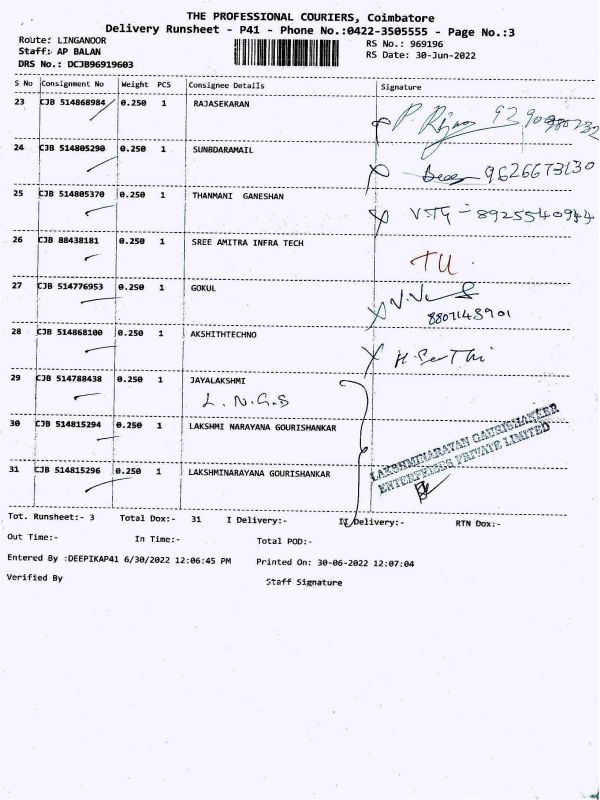 THE PROFESSIONAL COURIERS, Coimbatore
Delivery Runsheet - P41 - Phone No.:0422-3505555 - Page No.:3
Route: LINGANOOR RS No.: 969196
Staff: AP BALAN RS Date: 30-Jun-2022
DRS No.: DCJB96919603
S No Consignment No Weight PCS Consignee Details Signature
23 CJB 514868984 0.250 1 RAJASEKARAN
24 CJB 514805290 0.250 1 SUNBDARAMAIL 9626673130
25 CJB 514805370 0.250 1 THANMANI GANESHAN 8925540944
26 CJB 88438181 0.250 1 SREE AMITRA INFRA TECH TU
27 CJB 514776953 0.250 1 GOKUL
28 CJB 514868100 0.250 1 AKSHITHTECHNO
29 CJB 514788438 0.250 1 JAYALAKSHMI
L.N.G.S
30 CJB 514815294 0.250 1 LAKSHMI NARAYANA GOURISHANKAR
31 CJB 514815296 0.250 1 LAKSHMINARAYANA GOURISHANKAR
LAKSHMINARAYAN GAURISHANKER
ENTERPRISES PRIVATE LIMITED
Tot. Runsheet:- 3 Total Dox:- 31 I Delivery:- II Delivery:- RTN Dox:-
Out Time:- In Time:- Total POD:-
Entered By :DEEPIKAP41 6/30/2022 12:06:45 PM Printed On: 30-06-2022 12:07:04
Verified By Staff Signature